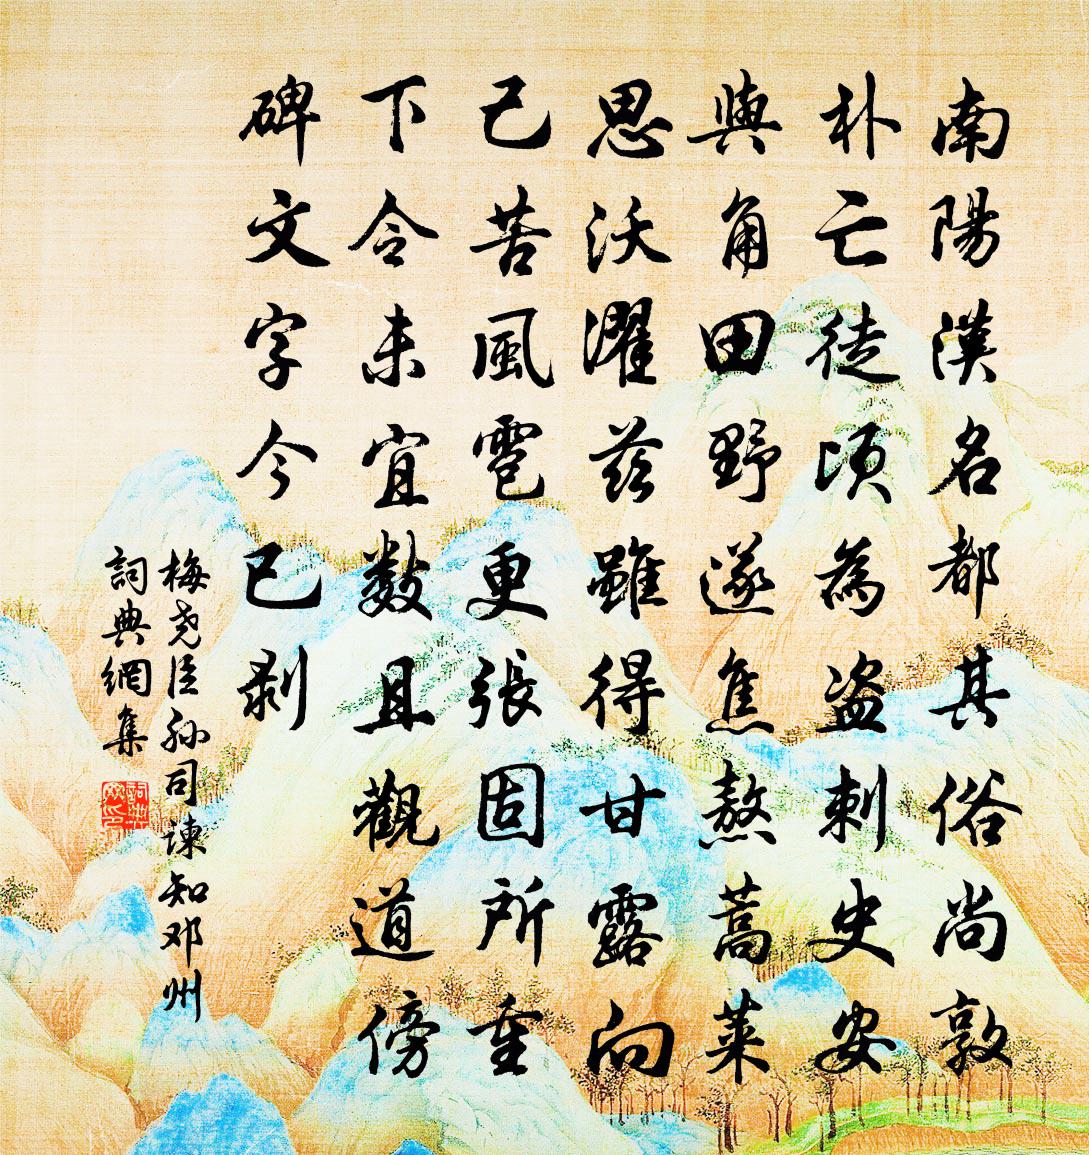 南陽漢名都其俗尚敦
朴亡徒頃為盜刺史安
與角田野遂焦熬蒿萊
思沃濯茲雖得甘露向
己苦風雹更張固所重
下令未宜數且觀道傍
碑文字今已剥
梅尧臣孙司谏知邓州
詞典網集